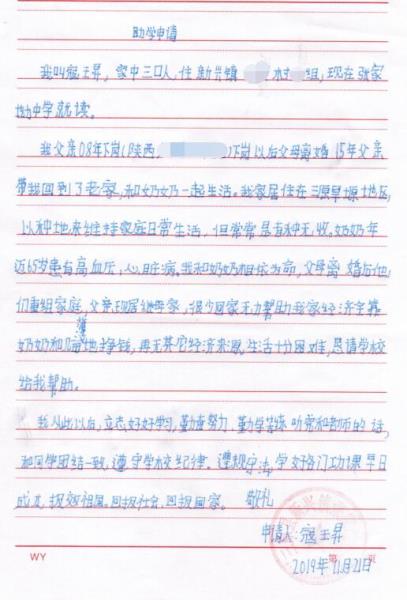 助学申请
我叫寇王昇,家中三口人,住新兴镇 村 组,现在张家
坳中学就读。
我父亲08年下岗(陕西 )下岗以后父母离婚15年父亲
带我回到了老家,和奶奶一起生活。我家居住在三原旱塬地区,
以种地来维持家庭日常生活,但常常是有种无收。奶奶年
近65岁患有高血压,心脏病。我和奶奶相依为命,父母离婚后他
们重组家庭,父亲现居继母家,很少回家无力帮助我家经济全靠
奶奶和 地挣钱,再无其它经济来源,生活十分困难,恳请学校
给我帮助。
我从此以后,立志好好学习,勤奋努力,勤学苦练听党和老师的话,
和同学团结一致,遵守学校纪律。遵规守法,学好各门功课早日
成才,报效祖国。回报社会,回报国家。 敬礼
申请人:寇王昇
2019年11月21日
WY 第 页